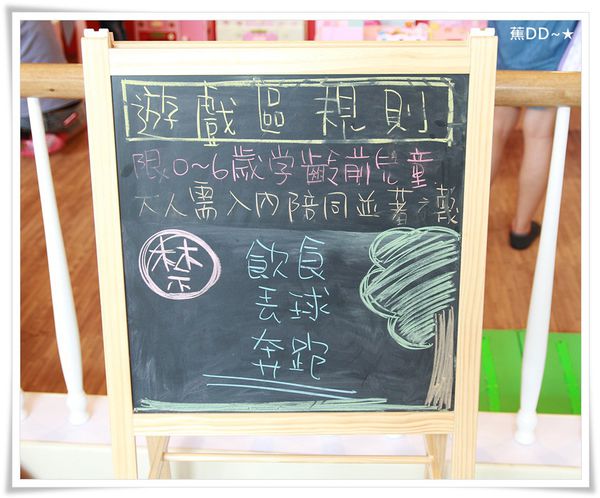 蕉DD~★
遊戲區規則
限0~6歲学齡前兒童
大人需入內陪同並著襪
禁
飲食
丟球
奔跑